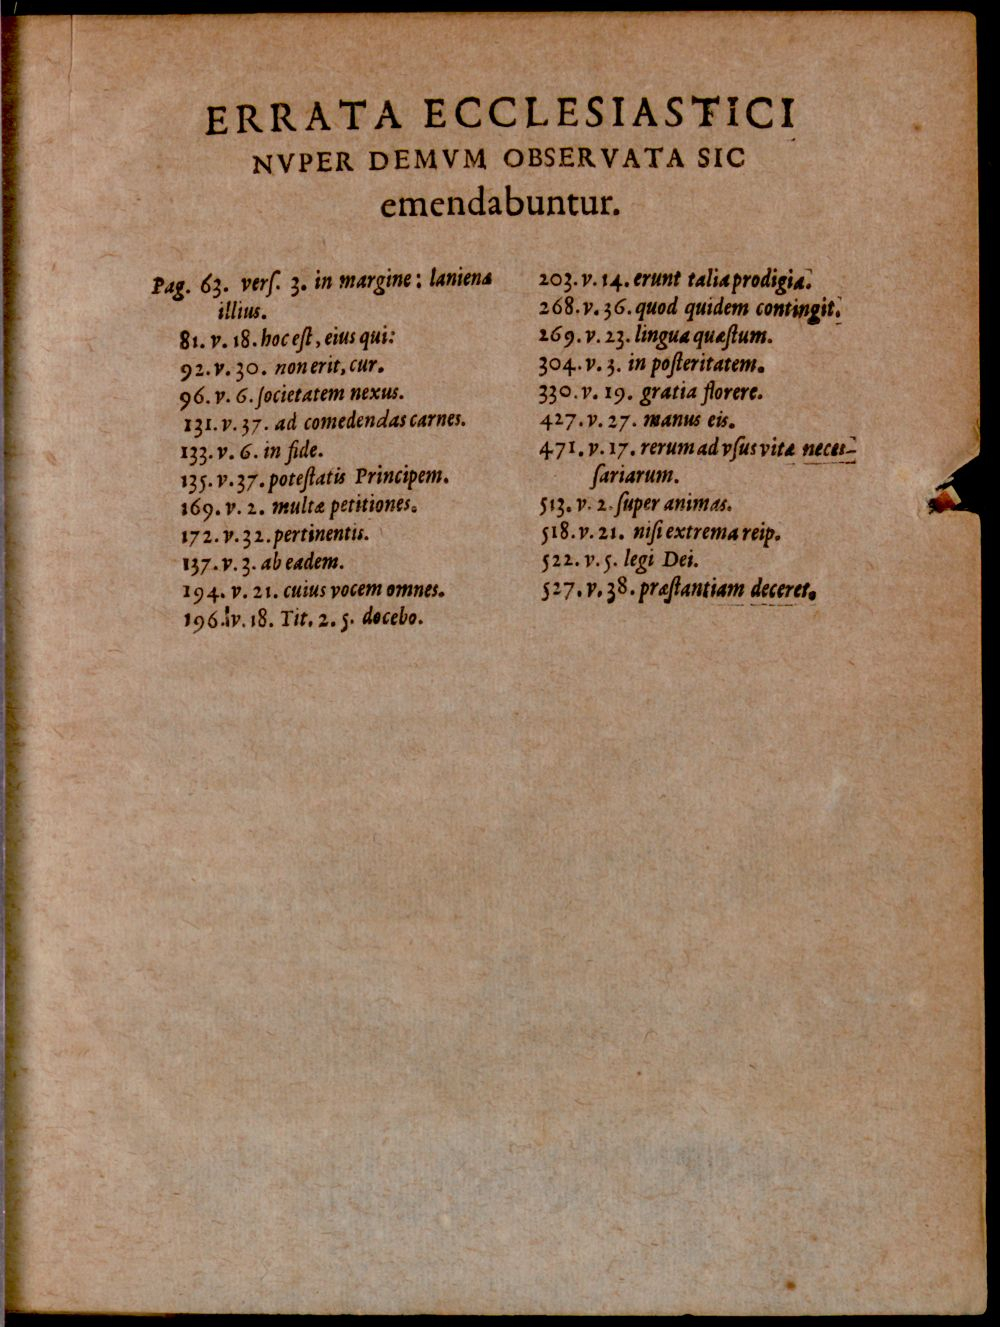 ERRATA ECCLESIASTICI
NVPER DEMVM OBSERVATA SIC
emendabuntur.
Pag. 63. verſ. 3. in margine: laniena
illius.
81. v. 18. hoc eſt, eius qui:
92. v. 30. non erit, cur.
96. v. 6. ſocietatem nexus.
131. v. 37. ad comedendas carnes.
133. v. 6. in fide.
135. v. 37. poteſtatis Principem.
169. v. 2. multæ petitiones.
172. v. 32. pertinentis.
137. v. 3. ab eadem.
194. v. 21. cuius vocem omnes.
196. v. 18. Tit. 2. 5. docebo.
203. v. 14. erunt talia prodigia.
268. v. 36. quod quidem contingit.
269. v. 23. lingua quæſtum.
304. v. 3. in poſteritatem.
330. v. 19. gratia florere.
427. v. 27. manus eis.
471. v. 17. rerum ad vſus vitæ neceſ-
ſariarum.
513. v. 2. ſuper animas.
518. v. 21. niſi extrema reip.
522. v. 5. legi Dei.
527. v. 38. præſtantiam deceret.